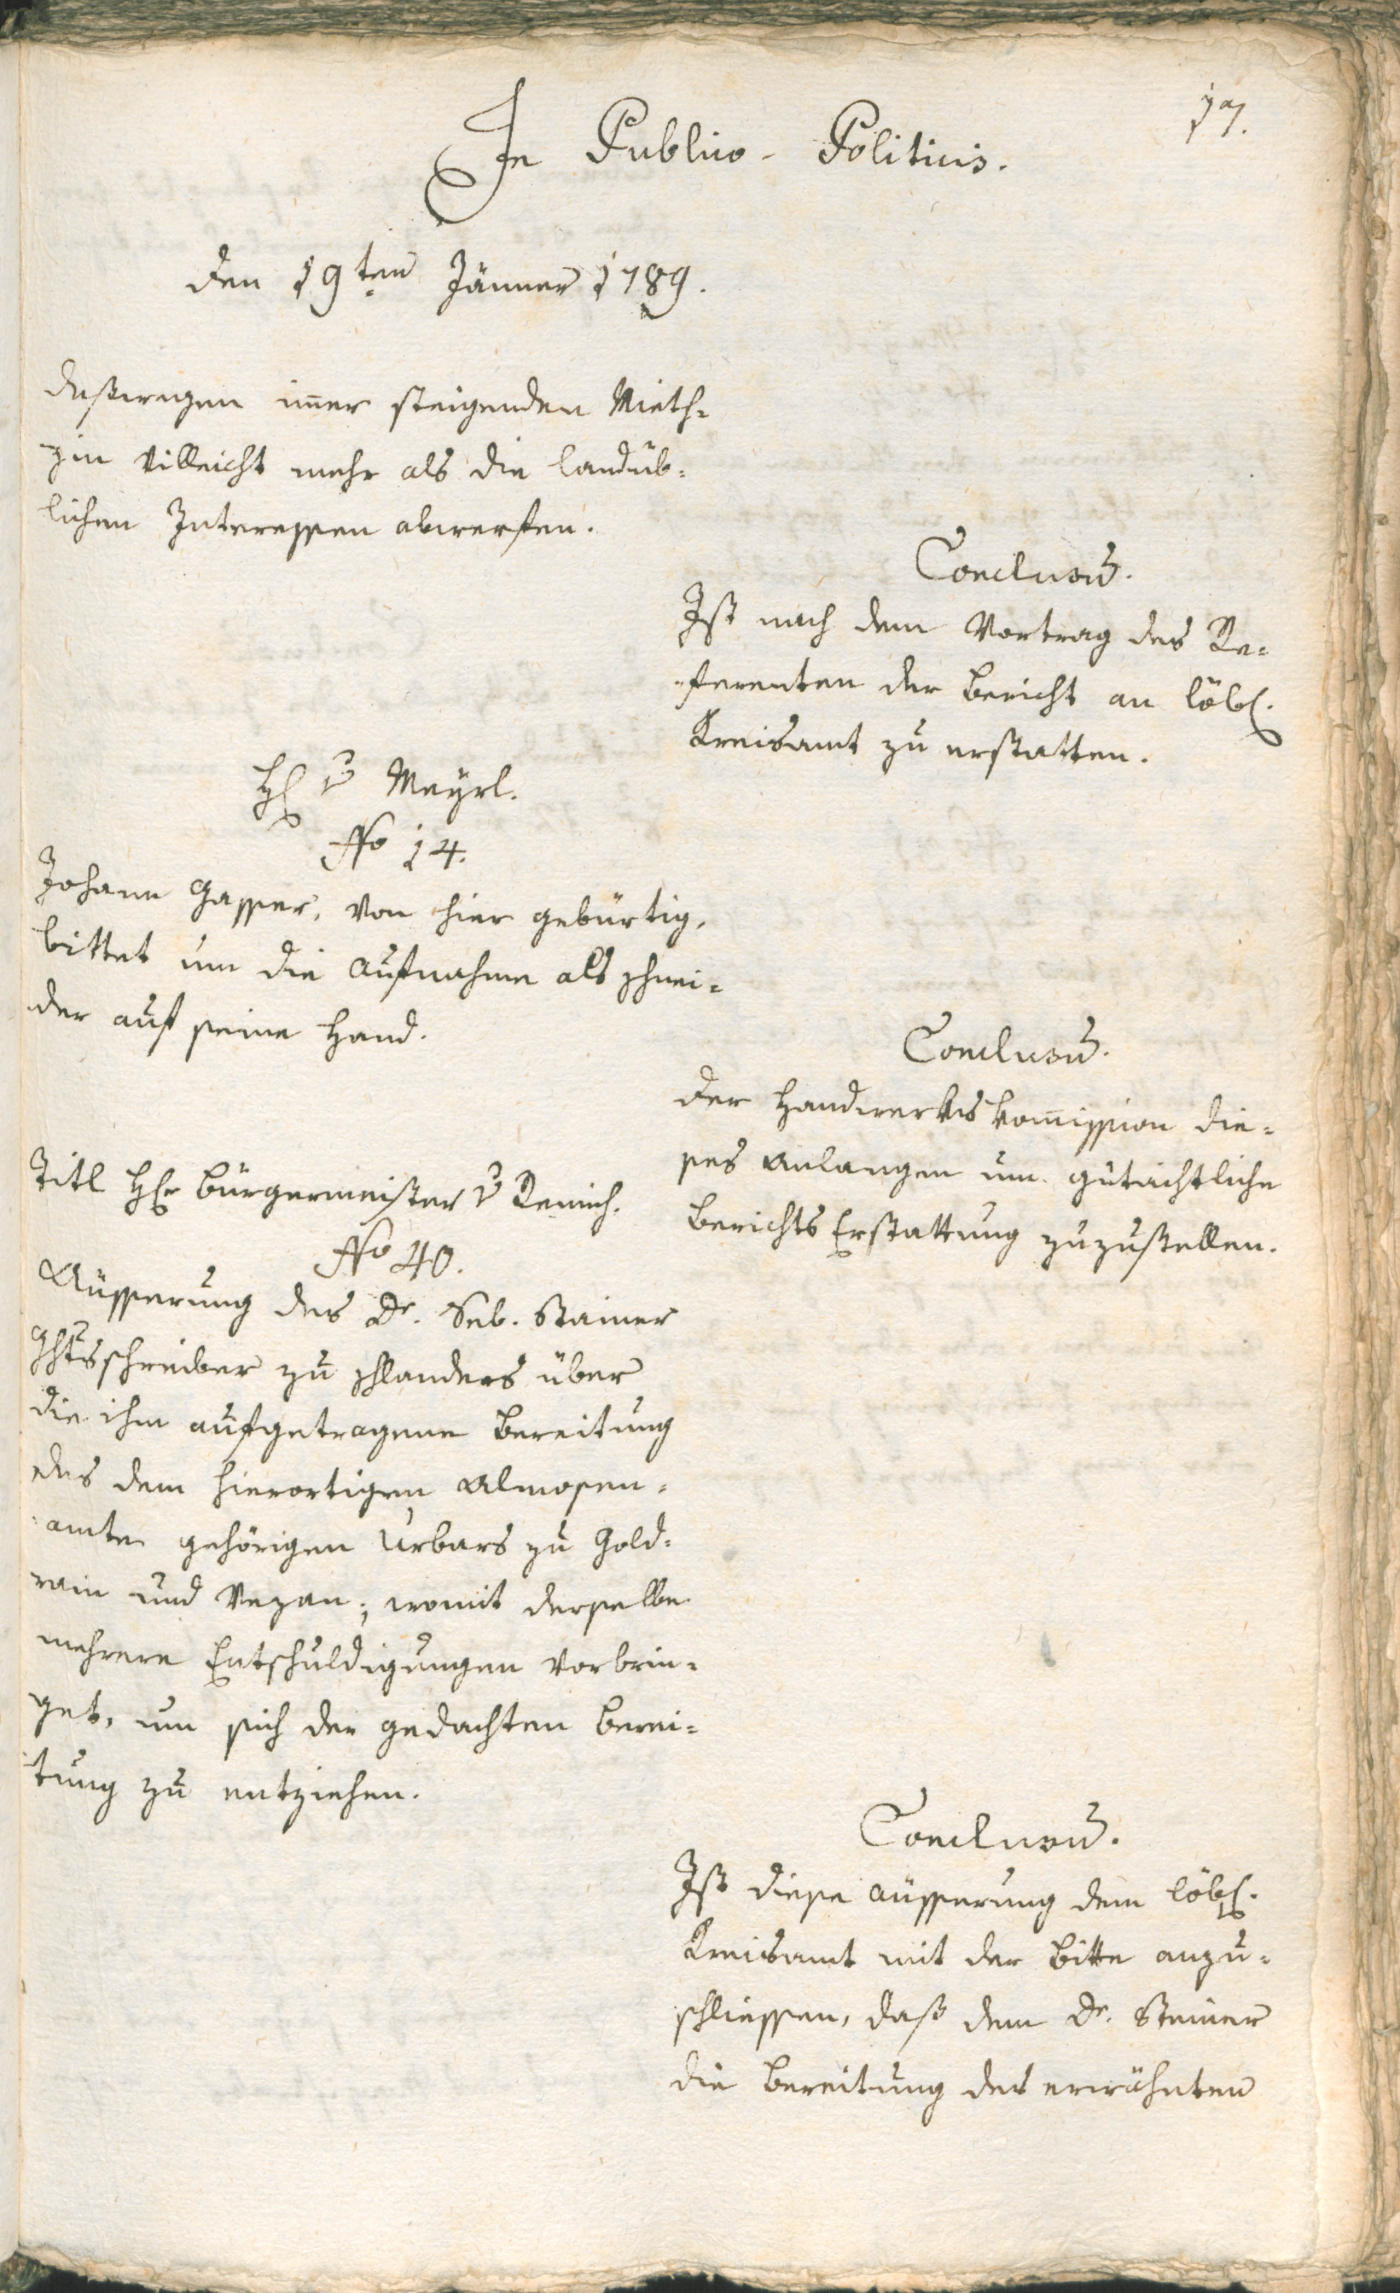 17.
In Publico-Politicis.
den 19ten Jänner 1789.
deßwegen imer steigenden Mieth-
zin villeicht mehr als die landüb-
lichen Interessen abwerfen.
Conclusum.
Ist nach dem Vortrag des Re-
ferenten der Bericht an löbl.
Kreisamt zu erstatten.
H. v Meyrl.
No 14.
Johann Gasser, von hier gebürtig,
bittet um die Aufnahme als Schnei-
der auf seine Hand.
Conclusum.
der Handwerkskomission die-
ses Anlangen um gutächtliche
Berichts Erstattung zuzustellen.
Titl Hr Bürgermeister v Remich.
No 40.
Äusserung des Dr. Seb. Stainer
Ghtsschreiber zu Schlanders über
die ihm aufgetragene Bereitung
des dem hierortigen Almosen-
amte gehörigen Urbars zu Gold-
rain und Vezan; womit derselbe
mehrere Entschuldigungen vorbrin-
get, um sich der gedachten Berei-
tung zu entziehen.
Conclusum.
Ist diese Äusserung dem löbl.
Kreisamt mit der Bitte anzu-
schliessen, daß dem Dr. Steiner
die Bereitung des erwähnten